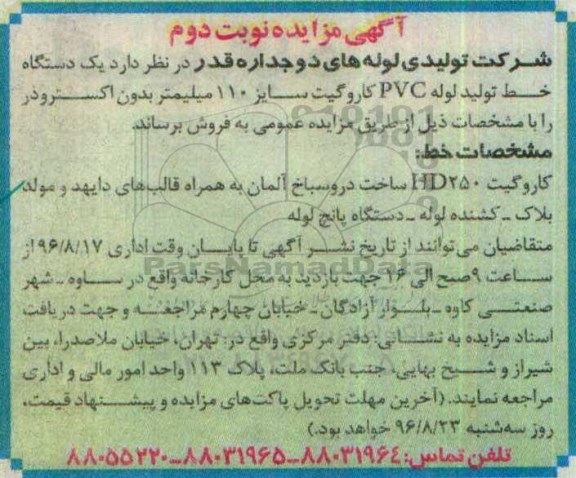 آگهی مزایده نوبت دوم
شرکت تولیدی لوله های دوجداره قدر در نظر دارد یک دستگاه
خط تولید لوله PVC کاروگیت سایز ۱۱۰ میلیمتر بدون اکسترودر
را با مشخصات ذیل از طریق مزایده عمومی به فروش برساند.
مشخصات خط:
کاروگیت HD۲۵۰ ساخت دروسباخ آلمان به همراه قالب‌های دایهد و مولد
بلاک - کشنده لوله - دستگاه پانچ لوله
متقاضیان می‌توانند از تاریخ نشر آگهی تا پایان وقت اداری ۹۶/۸/۱۷ از
ساعت ۹ صبح الی ۱۶ جهت بازدید به محل کارخانه واقع در ساوه - شهر
صنعتی کاوه - بلوار آزادگان - خیابان چهارم مراجعه و جهت دریافت
اسناد مزایده به نشانی: دفتر مرکزی واقع در: تهران، خیابان ملاصدرا، بین
شیراز و شیخ بهایی، جنب بانک ملت، پلاک ۱۱۳ واحد امور مالی و اداری
مراجعه نمایند. (آخرین مهلت تحویل پاکت‌های مزایده و پیشنهاد قیمت،
روز سه‌شنبه ۹۶/۸/۲۳ خواهد بود.)
تلفن تماس: ۸۸۰۳۱۹۶۴-۸۸۰۳۱۹۶۵-۸۸۰۵۵۲۲۰
ParsNamadData